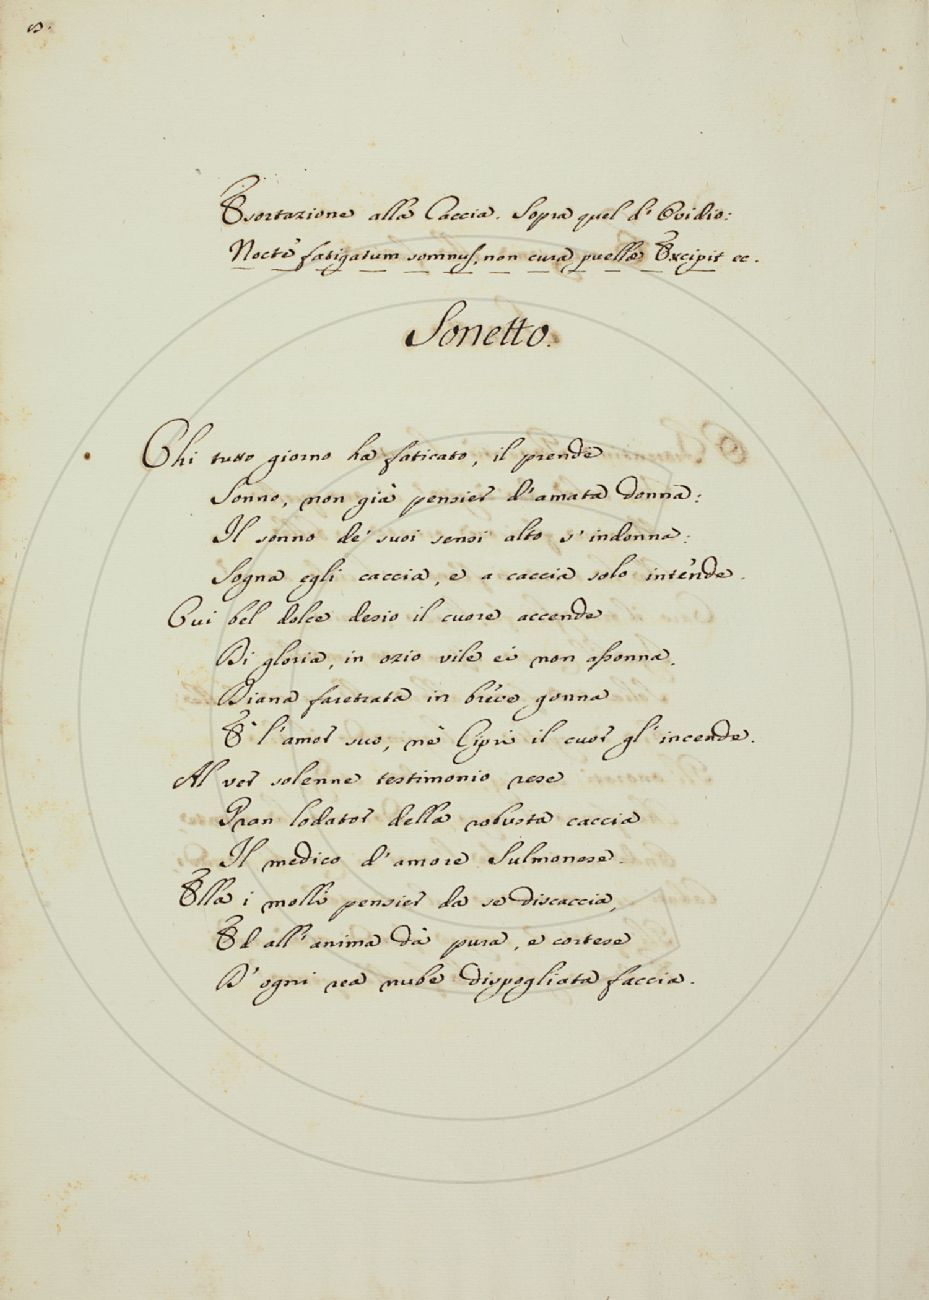 8.
Esortazione alla Caccia. Sopra quel d' Ovidio:
Nocte fatigatum somnus, non cura puellæ Excipit ec.
Sonetto.
Chi tutto giorno ha faticato, il prende
Sonno, non già pensier d'amata donna:
Il sonno de' suoi sensi alto s'indonna:
Sogna egli caccia, e a caccia solo intende.
Cui bel dolce desio il cuore accende
Di gloria, in ozio vile ei non assonna.
Diana faretrata in breve gonna
È l'amor suo, nè Cipri il cuor gl'incende.
Al ver solenne testimonio rese
Gran lodator della robusta caccia
Il medico d'amore Sulmonese.
Ella i molli pensier da se discaccia,
Ed all'anima dà pura, e cortese
D'ogni rea nube dispogliata faccia.